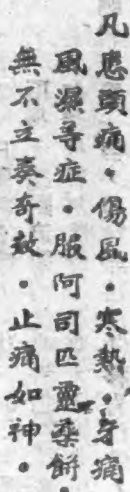 凡患頭痛。傷風。寒熱。牙痛
風濕等症。服阿司匹靈藥餅。
無不立奏奇效。止痛如神。